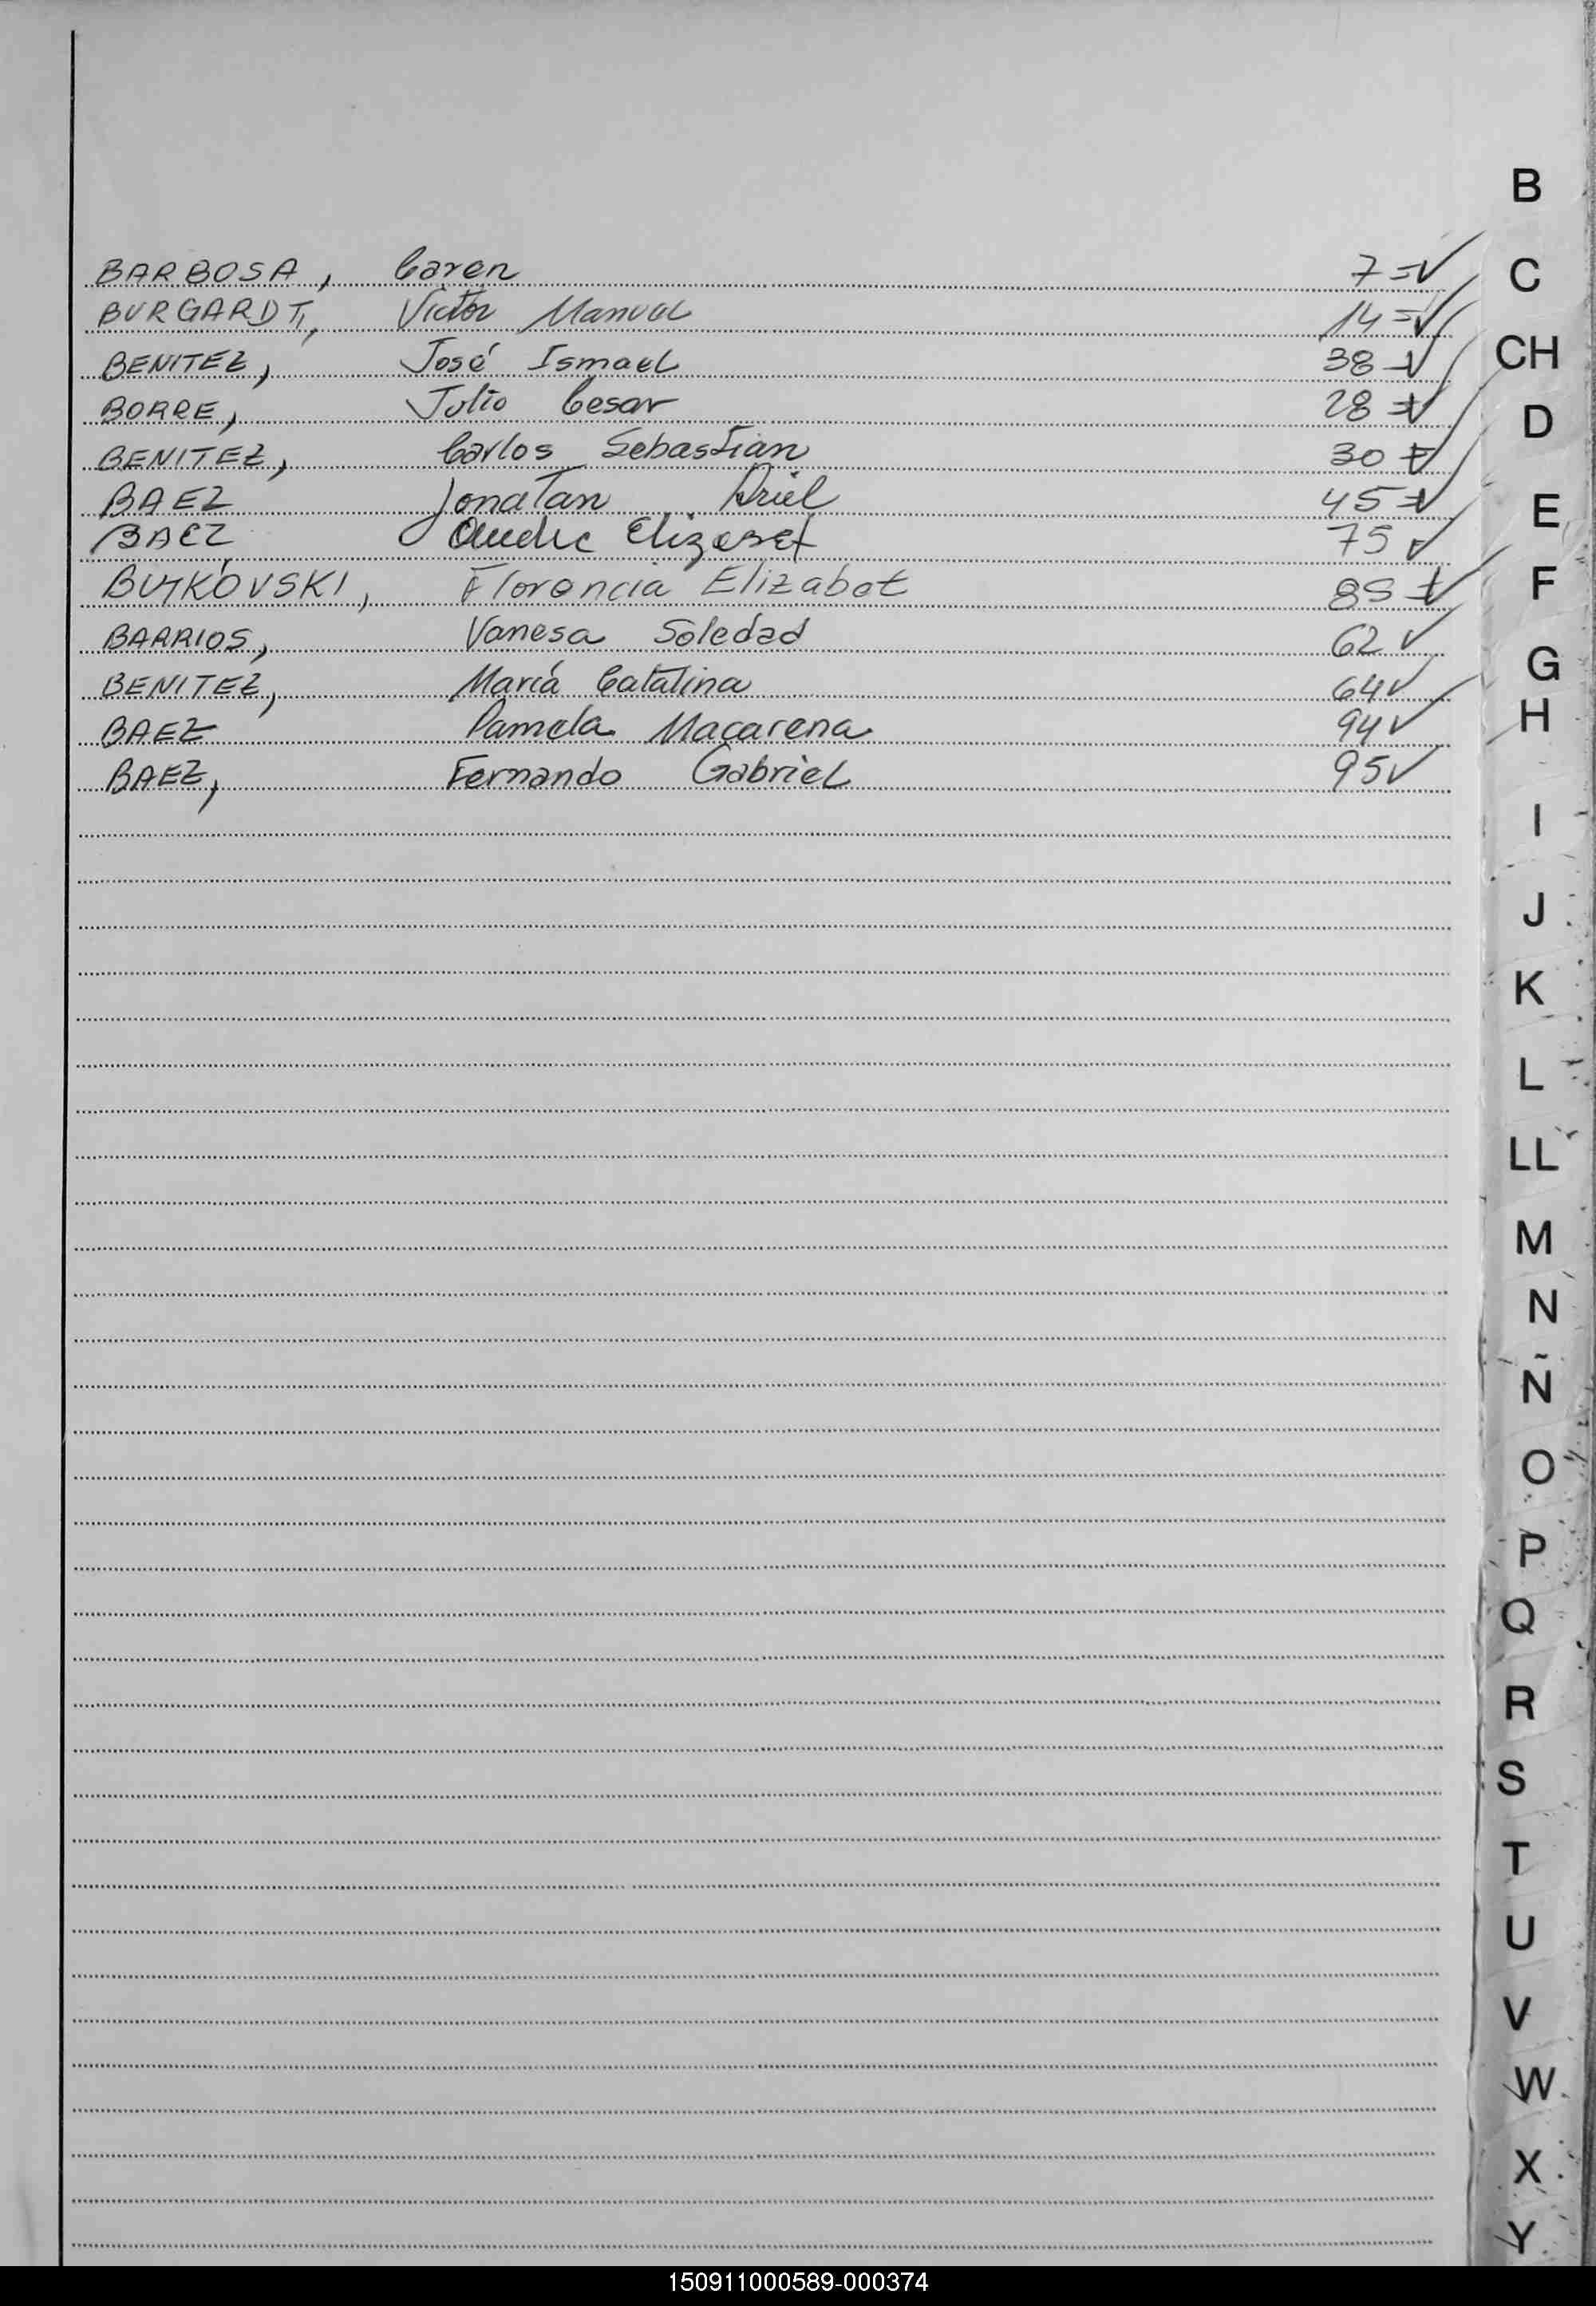 B
BARBOSA, Caren 7 =✓
C
BURGARDT, Victor Manuel 14 =✓
BENITEZ, José Ismael 38 -✓
CH
BORRE, Julio Cesar 28 =✓
D
BENITEZ, Carlos Sebastian 30 =✓
BAEZ Jonatan Ariel 45 =✓
E
BAEZ Elizabet 75 ✓
BUTKOVSKI, Florencia Elizabet ✓
F
BARRIOS, Vanesa Soledad 62 ✓
G
BENITEZ, María Catalina 64 ✓
BAEZ Pamela Macarena 94 ✓
H
BAEZ, Fernando Gabriel 95 ✓
I
J
K
L
LL
M
N
Ñ
O
P
Q
R
S
T
U
V
W
X
Y
150911000589-000374